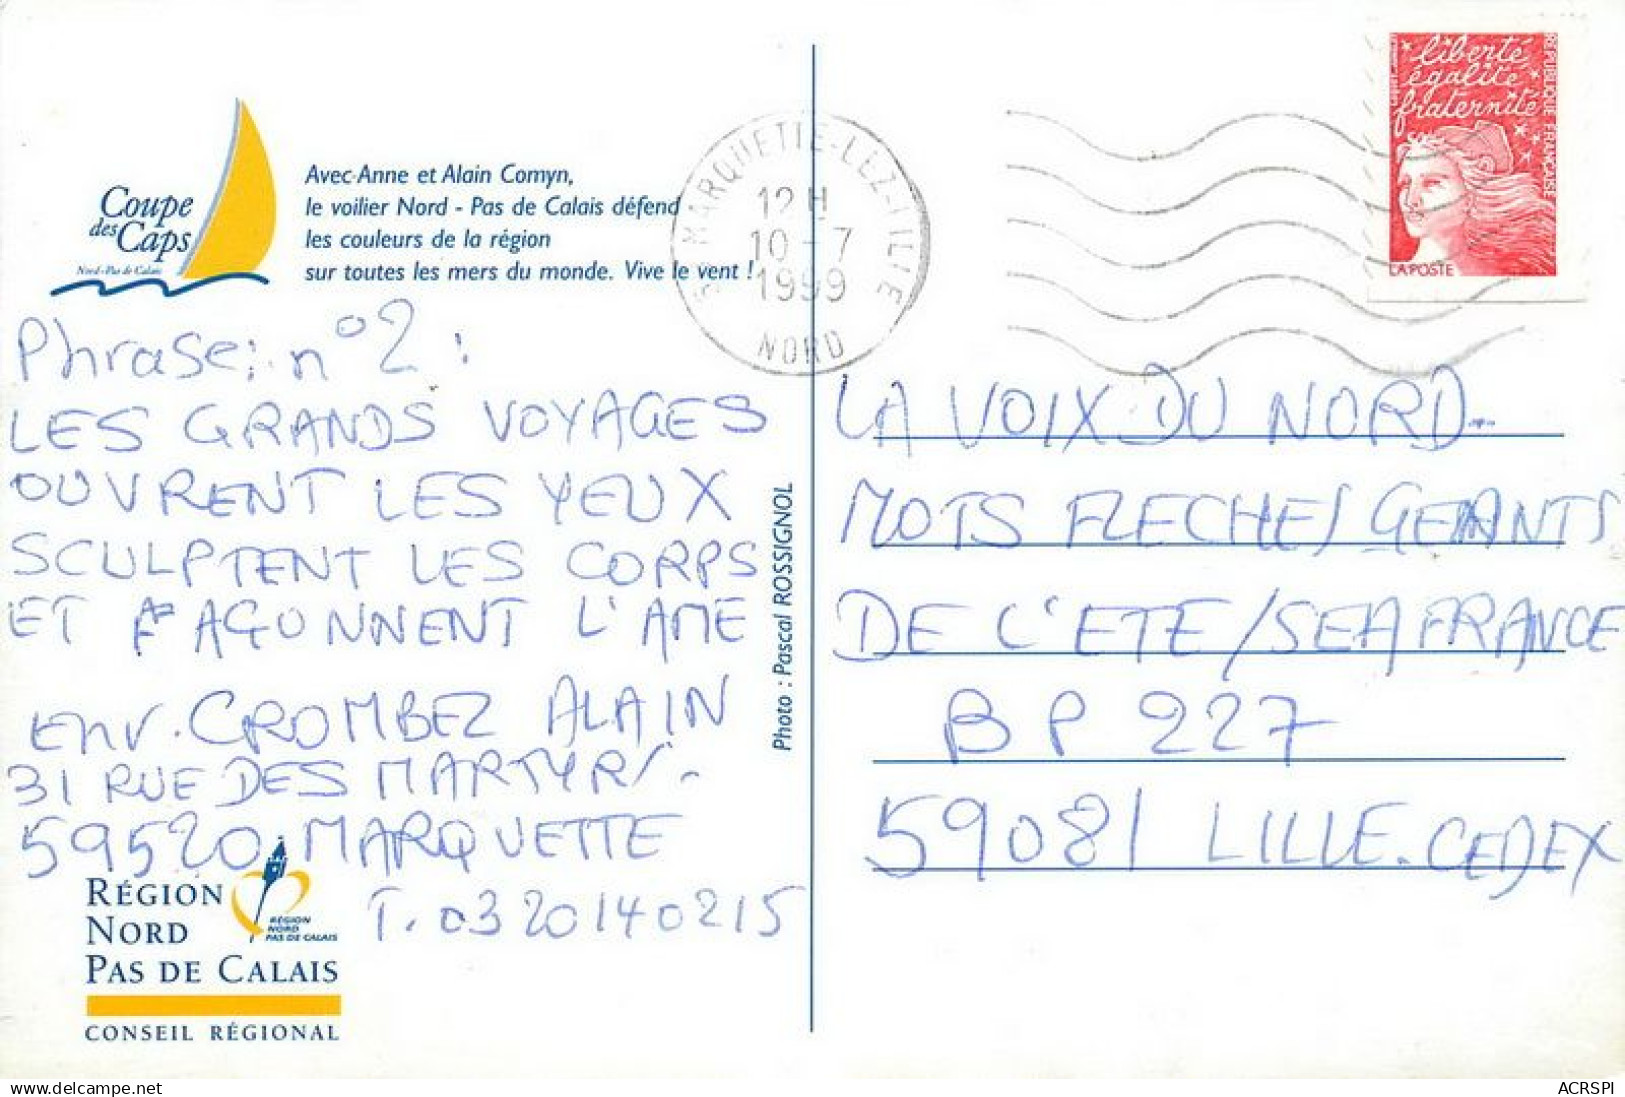 Coupe
des Caps
Nord-Pas de Calais
Avec Anne et Alain Comyn,
le voilier Nord - Pas de Calais défend
les couleurs de la région
sur toutes les mers du monde. Vive le vent !
MARQUETTE-LEZ-LILLE
12 H
10 - 7
1999
NORD
liberté,
égalité,
fraternité
RÉPUBLIQUE FRANÇAISE
LA POSTE
Phrase: n° 2 :
LES GRANDS VOYAGES
OUVRENT LES YEUX
SCULPTENT LES CORPS
ET FAÇONNENT L'AME
env. CROMBEZ ALAIN
31 RUE DES MARTYRS -
59520 MARQUETTE
T. 03 20 14 02 15
Photo : Pascal ROSSIGNOL
RÉGION
NORD
PAS DE CALAIS
RÉGION
NORD
PAS DE CALAIS
CONSEIL RÉGIONAL
LA VOIX DU NORD -
MOTS FLECHES GEANTS
DE L'ETE / SEAFRANCE
BP 227
59081 LILLE. CEDEX
ACRSPI